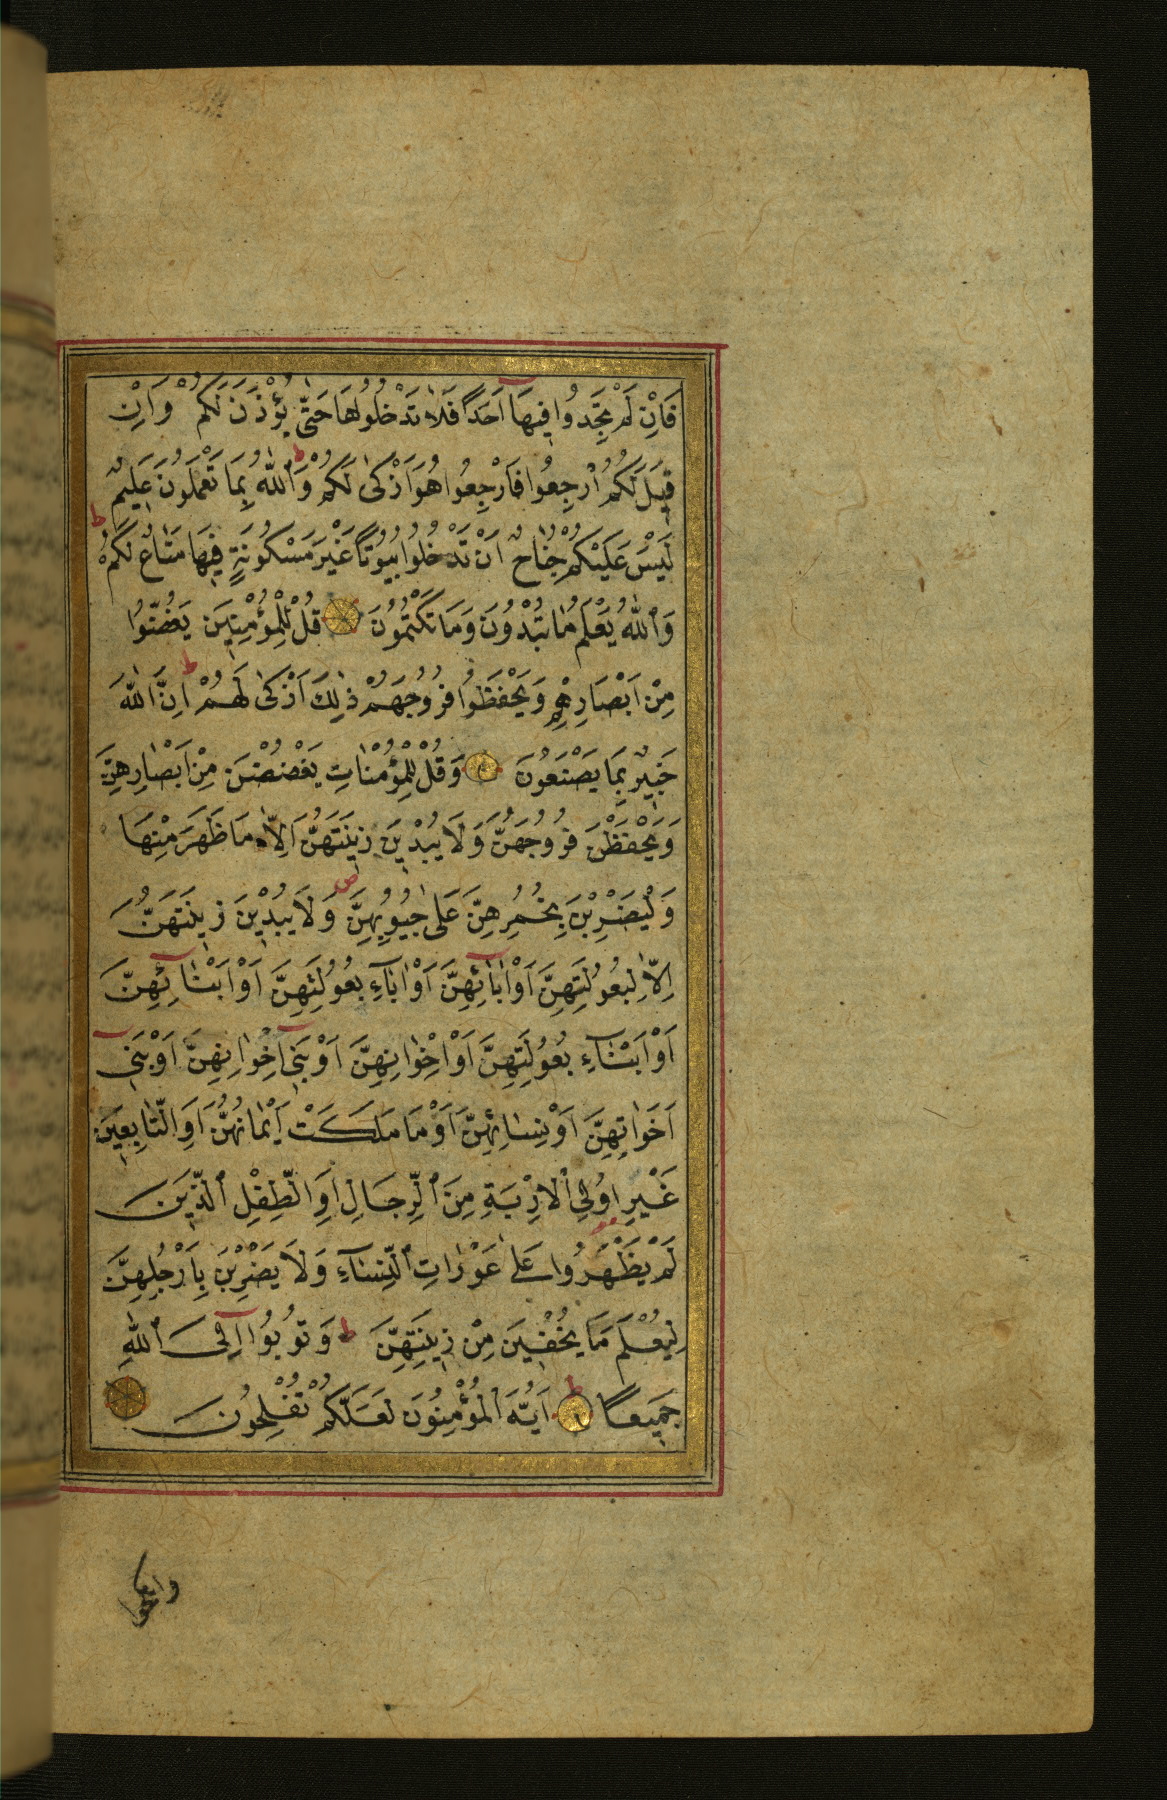 فَاِنْ لَمْ تَجِدُوا فِيهَا اَحَدًا فَلَا تَدْخُلُوهَا حَتّٰى يُؤْذَنَ لَكُمْ وَاِنْ
قِيلَ لَكُمُ ارْجِعُوا فَارْجِعُوا هُوَ اَزْكٰى لَكُمْ وَاللّٰهُ بِمَا تَعْمَلُونَ عَلِيمٌ
لَيْسَ عَلَيْكُمْ جُنَاحٌ اَنْ تَدْخُلُوا بُيُوتًا غَيْرَ مَسْكُونَةٍ فِيهَا مَتَاعٌ لَكُمْ
وَاللّٰهُ يَعْلَمُ مَا تُبْدُونَ وَمَا تَكْتُمُونَ قُلْ لِلْمُؤْمِنِينَ يَغُضُّوا
مِنْ اَبْصَارِهِمْ وَيَحْفَظُوا فُرُوجَهُمْ ذٰلِكَ اَزْكٰى لَهُمْ اِنَّ اللّٰهَ
خَبِيرٌ بِمَا يَصْنَعُونَ وَقُلْ لِلْمُؤْمِنَاتِ يَغْضُضْنَ مِنْ اَبْصَارِهِنَّ
وَيَحْفَظْنَ فُرُوجَهُنَّ وَلَا يُبْدِينَ زِينَتَهُنَّ اِلَّا مَا ظَهَرَ مِنْهَا
وَلْيَضْرِبْنَ بِخُمُرِهِنَّ عَلٰى جُيُوبِهِنَّ وَلَا يُبْدِينَ زِينَتَهُنَّ
اِلَّا لِبُعُولَتِهِنَّ اَوْ اٰبَائِهِنَّ اَوْ اٰبَاءِ بُعُولَتِهِنَّ اَوْ اَبْنَائِهِنَّ
اَوْ اَبْنَاءِ بُعُولَتِهِنَّ اَوْ اِخْوَانِهِنَّ اَوْ بَنِى اِخْوَانِهِنَّ اَوْ بَنِى
اَخَوَاتِهِنَّ اَوْ نِسَائِهِنَّ اَوْ مَا مَلَكَتْ اَيْمَانُهُنَّ اَوِ التَّابِعِينَ
غَيْرِ اُولِى الْاِرْبَةِ مِنَ الرِّجَالِ اَوِ الطِّفْلِ الَّذِينَ
لَمْ يَظْهَرُوا عَلٰى عَوْرَاتِ النِّسَاءِ وَلَا يَضْرِبْنَ بِاَرْجُلِهِنَّ
لِيُعْلَمَ مَا يُخْفِينَ مِنْ زِينَتِهِنَّ وَتُوبُوا اِلَى اللّٰهِ
جَمِيعًا اَيُّهَ الْمُؤْمِنُونَ لَعَلَّكُمْ تُفْلِحُونَ
وانكحوا